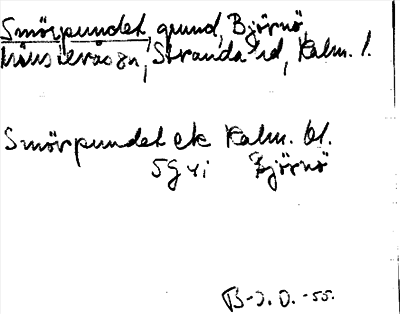 Smörpundet, grund, Björnö,
Stranda hd, Kalm. l.
Smörpundet ek Kalm. bl.
5G4i Björnö
B-J.O.-55.